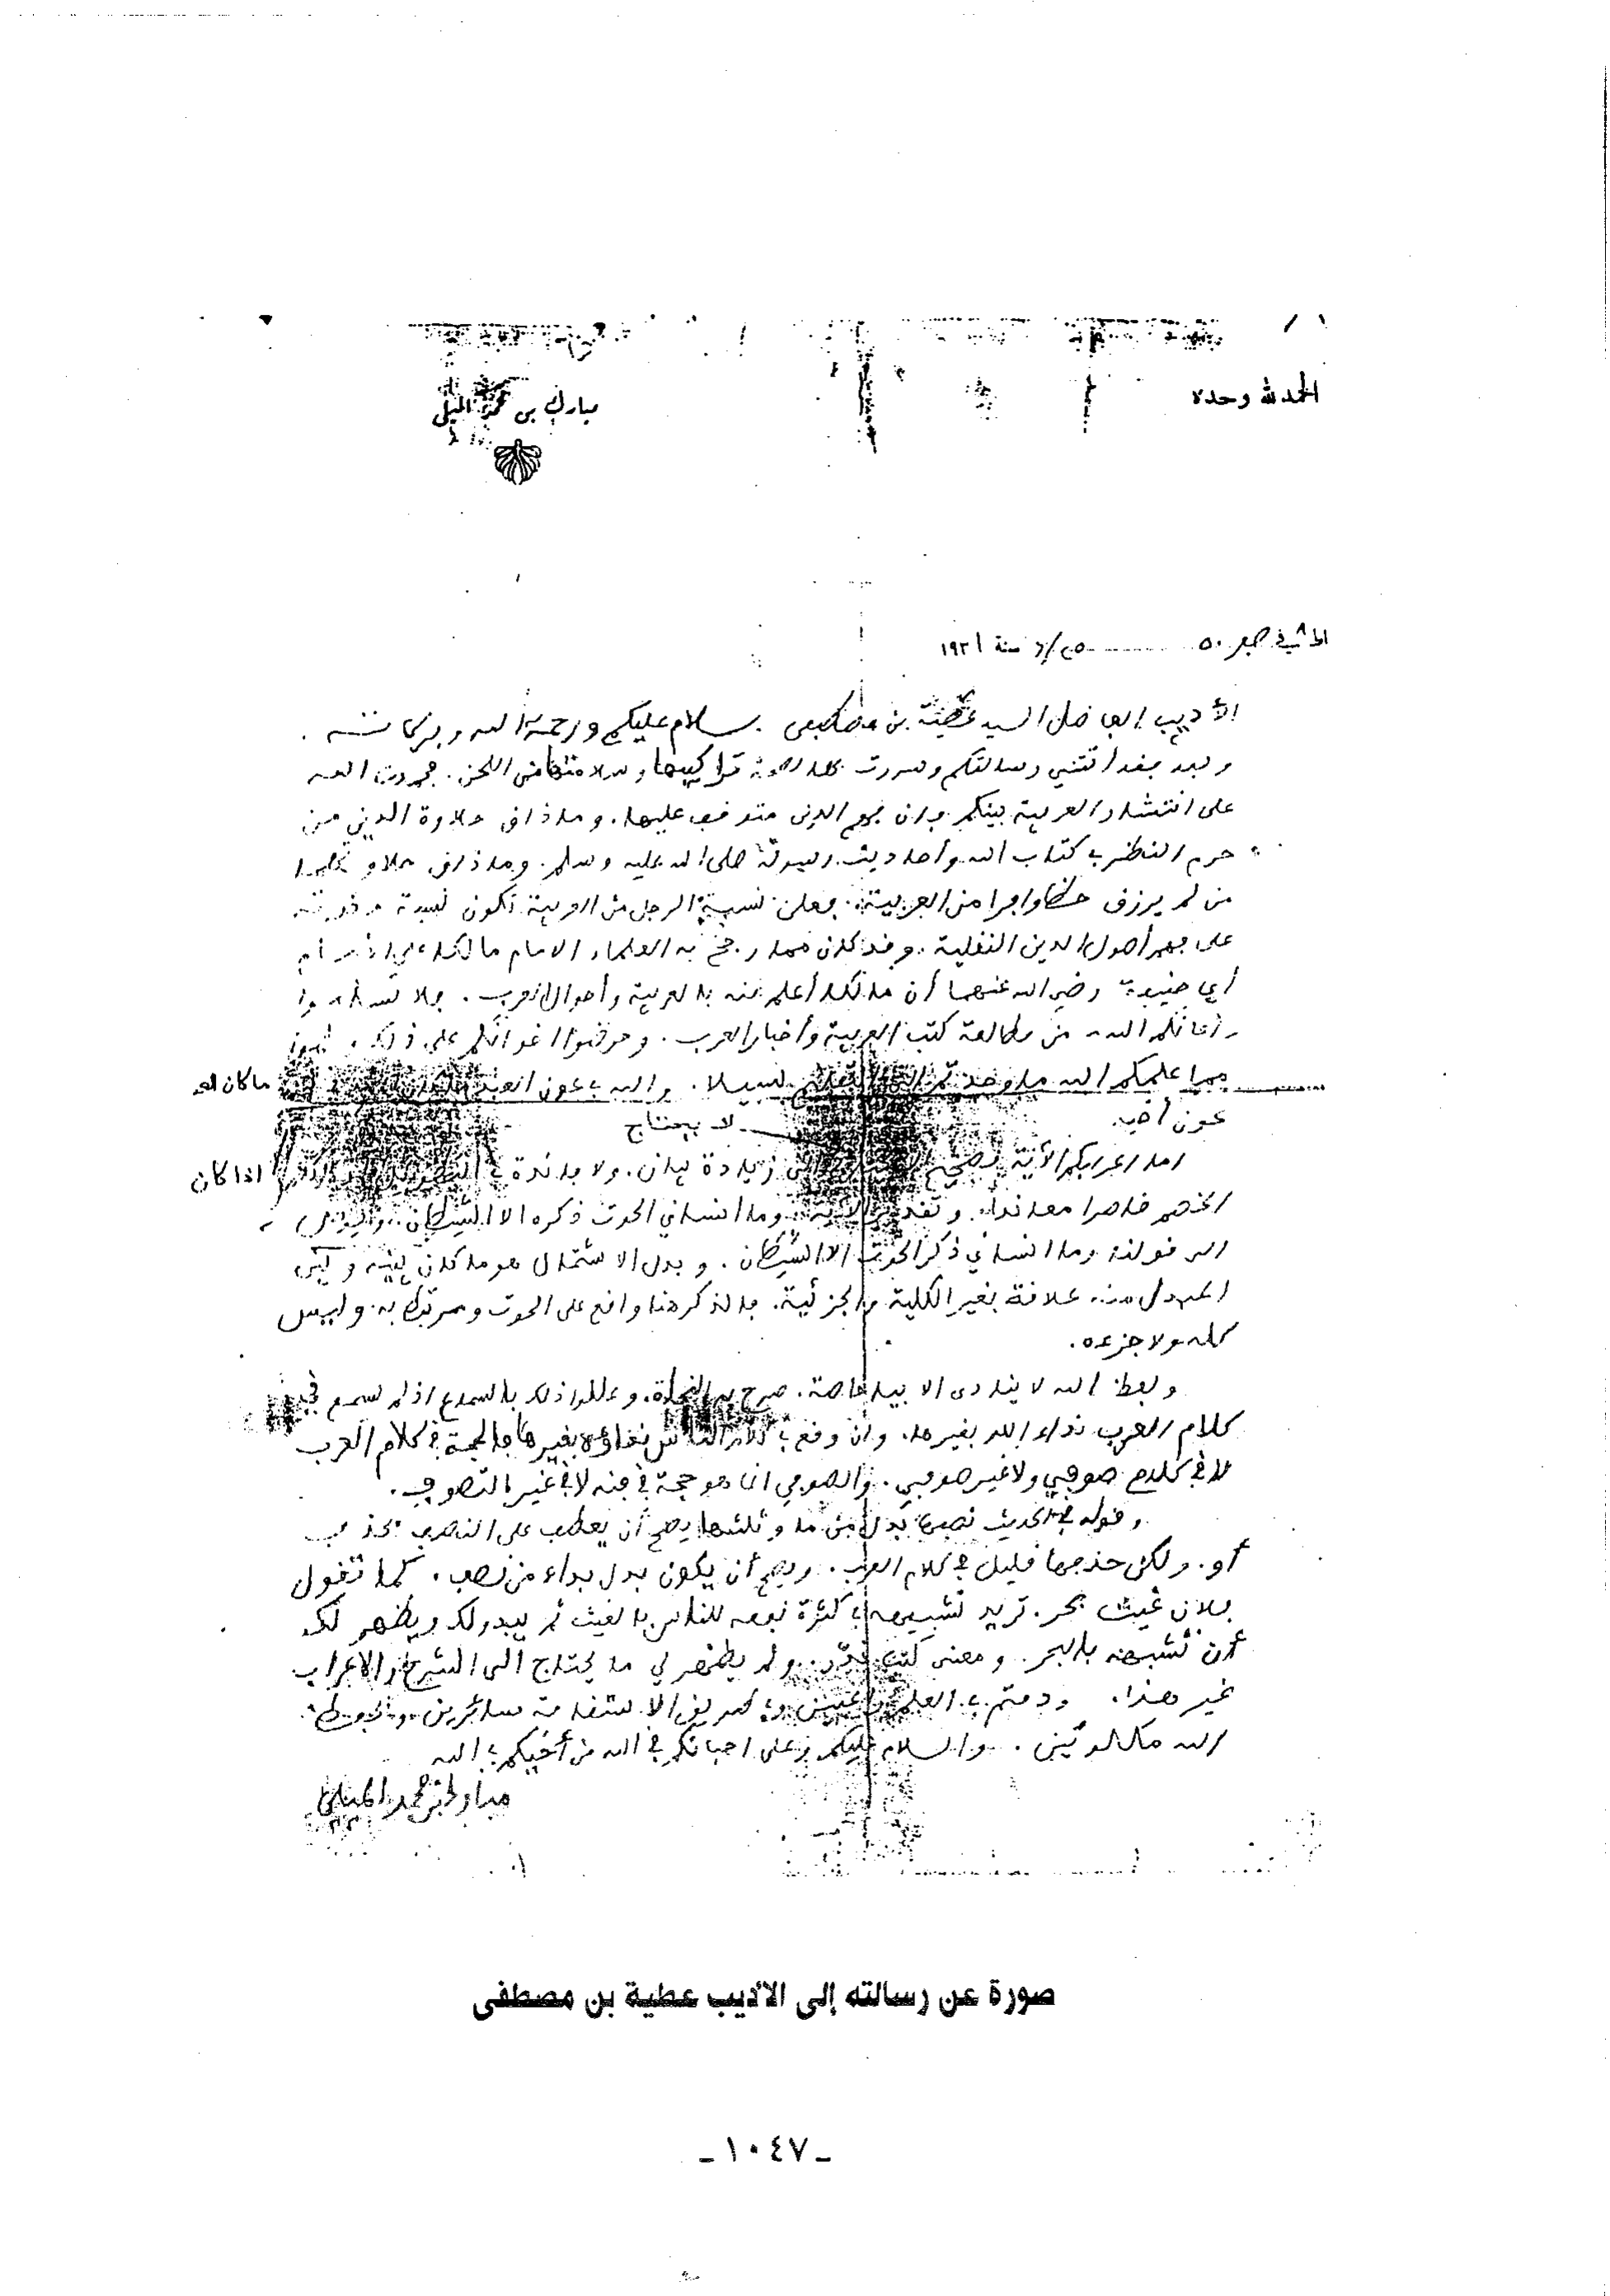 الحمد لله وحده
مبارك بن محمد الميلي
صفر ٥٠ سنة ١٩٣١
الأديب الفاضل السيد عطية بن مصطفى . سلام عليكم ورحمة الله وبركاته .
وبعد فقد أتتني رسالتكم وسررت تراكيبها وسلامتها من اللحن . فحمدت الله
على انتشار العربية بينكم فإن فهم الدين متوقف عليها . وما ذاق حلاوة الدين من
حرم النظر في كتاب الله وأحاديث رسوله صلى الله عليه وسلم . وما ذاق
من لم يرزق حظا وافرا من العربية . فعلى نسبة الرجل من العربية تكون نسبة
على فهم أصول الدين النقلية . وقد كان مما رجح به العلماء الامام مالكا على
أبي حنيفة رضي الله عنهما أن مالكا أعلم منه بالعربية وأحوال العرب . فلا
- أعانكم الله - من مطالعة كتب العربية وأخبار العرب . على ذلك .
مما علمكم الله ما وجدتم إلى التعليم سبيلا . والله في عون العبد ما كان العبد في
عون أخيه .
لا يحتاج
أما اعرابكم الآية فصحيح إلى زيادة بيان . ولا فائدة في اذا كان
الخصم قاصرا معاندا . وتقدير الآية وما انساني الحوت ذكره الا الشيطان .
الى قولنا وما انساني ذكر الحوت الا الشيطان . وبدل الاشتمال هو ما كان بينه وبين
المبدل منه علاقة بغير الكلية والجزئية . فالذكر هنا واقع على الحوت ومرتبط به وليس
كله ولا جزءه .
ولفظ الله لا ينادى الا بيا خاصة . صرح به النحاة . وعللوا ذلك بالسماع اذ لم يسمع في
كلام العرب نداء الله بغيرها . وان وقع في كلام الناس نداؤه بغيرها فالحجة في كلام العرب
لا في كلام صوفي ولا غير صوفي . والصوفي انما هو حجة في فنه لا في غير التصوف .
وقوله في الحديث نصفها بدل من ما وثلثها يصح أن يعطف على النصف بحذف
أو . ولكن حذفها قليل في كلام العرب . ويصح أن يكون بدل بداء من نصف . كما تقول
فلان غيث بحر . تريد تشبيهه في كثرة نفعه للناس بالغيث ثم يبدو لك ويظهر لك
أن تشبهه بالبحر . ومعنى كتب قدر . ولم يظهر لي ما يحتاج الى الشرح والاعراب
غير هذا . ودمتم في العلم راغبين وفي طريق الاستقامة سائرين
الله . والسلام عليكم وعلى احبائكم في الله من أخيكم في الله
مبارك بن محمد الميلي
صورة عن رسالته إلى الأديب عطية بن مصطفى
- ١٠٤٧ -